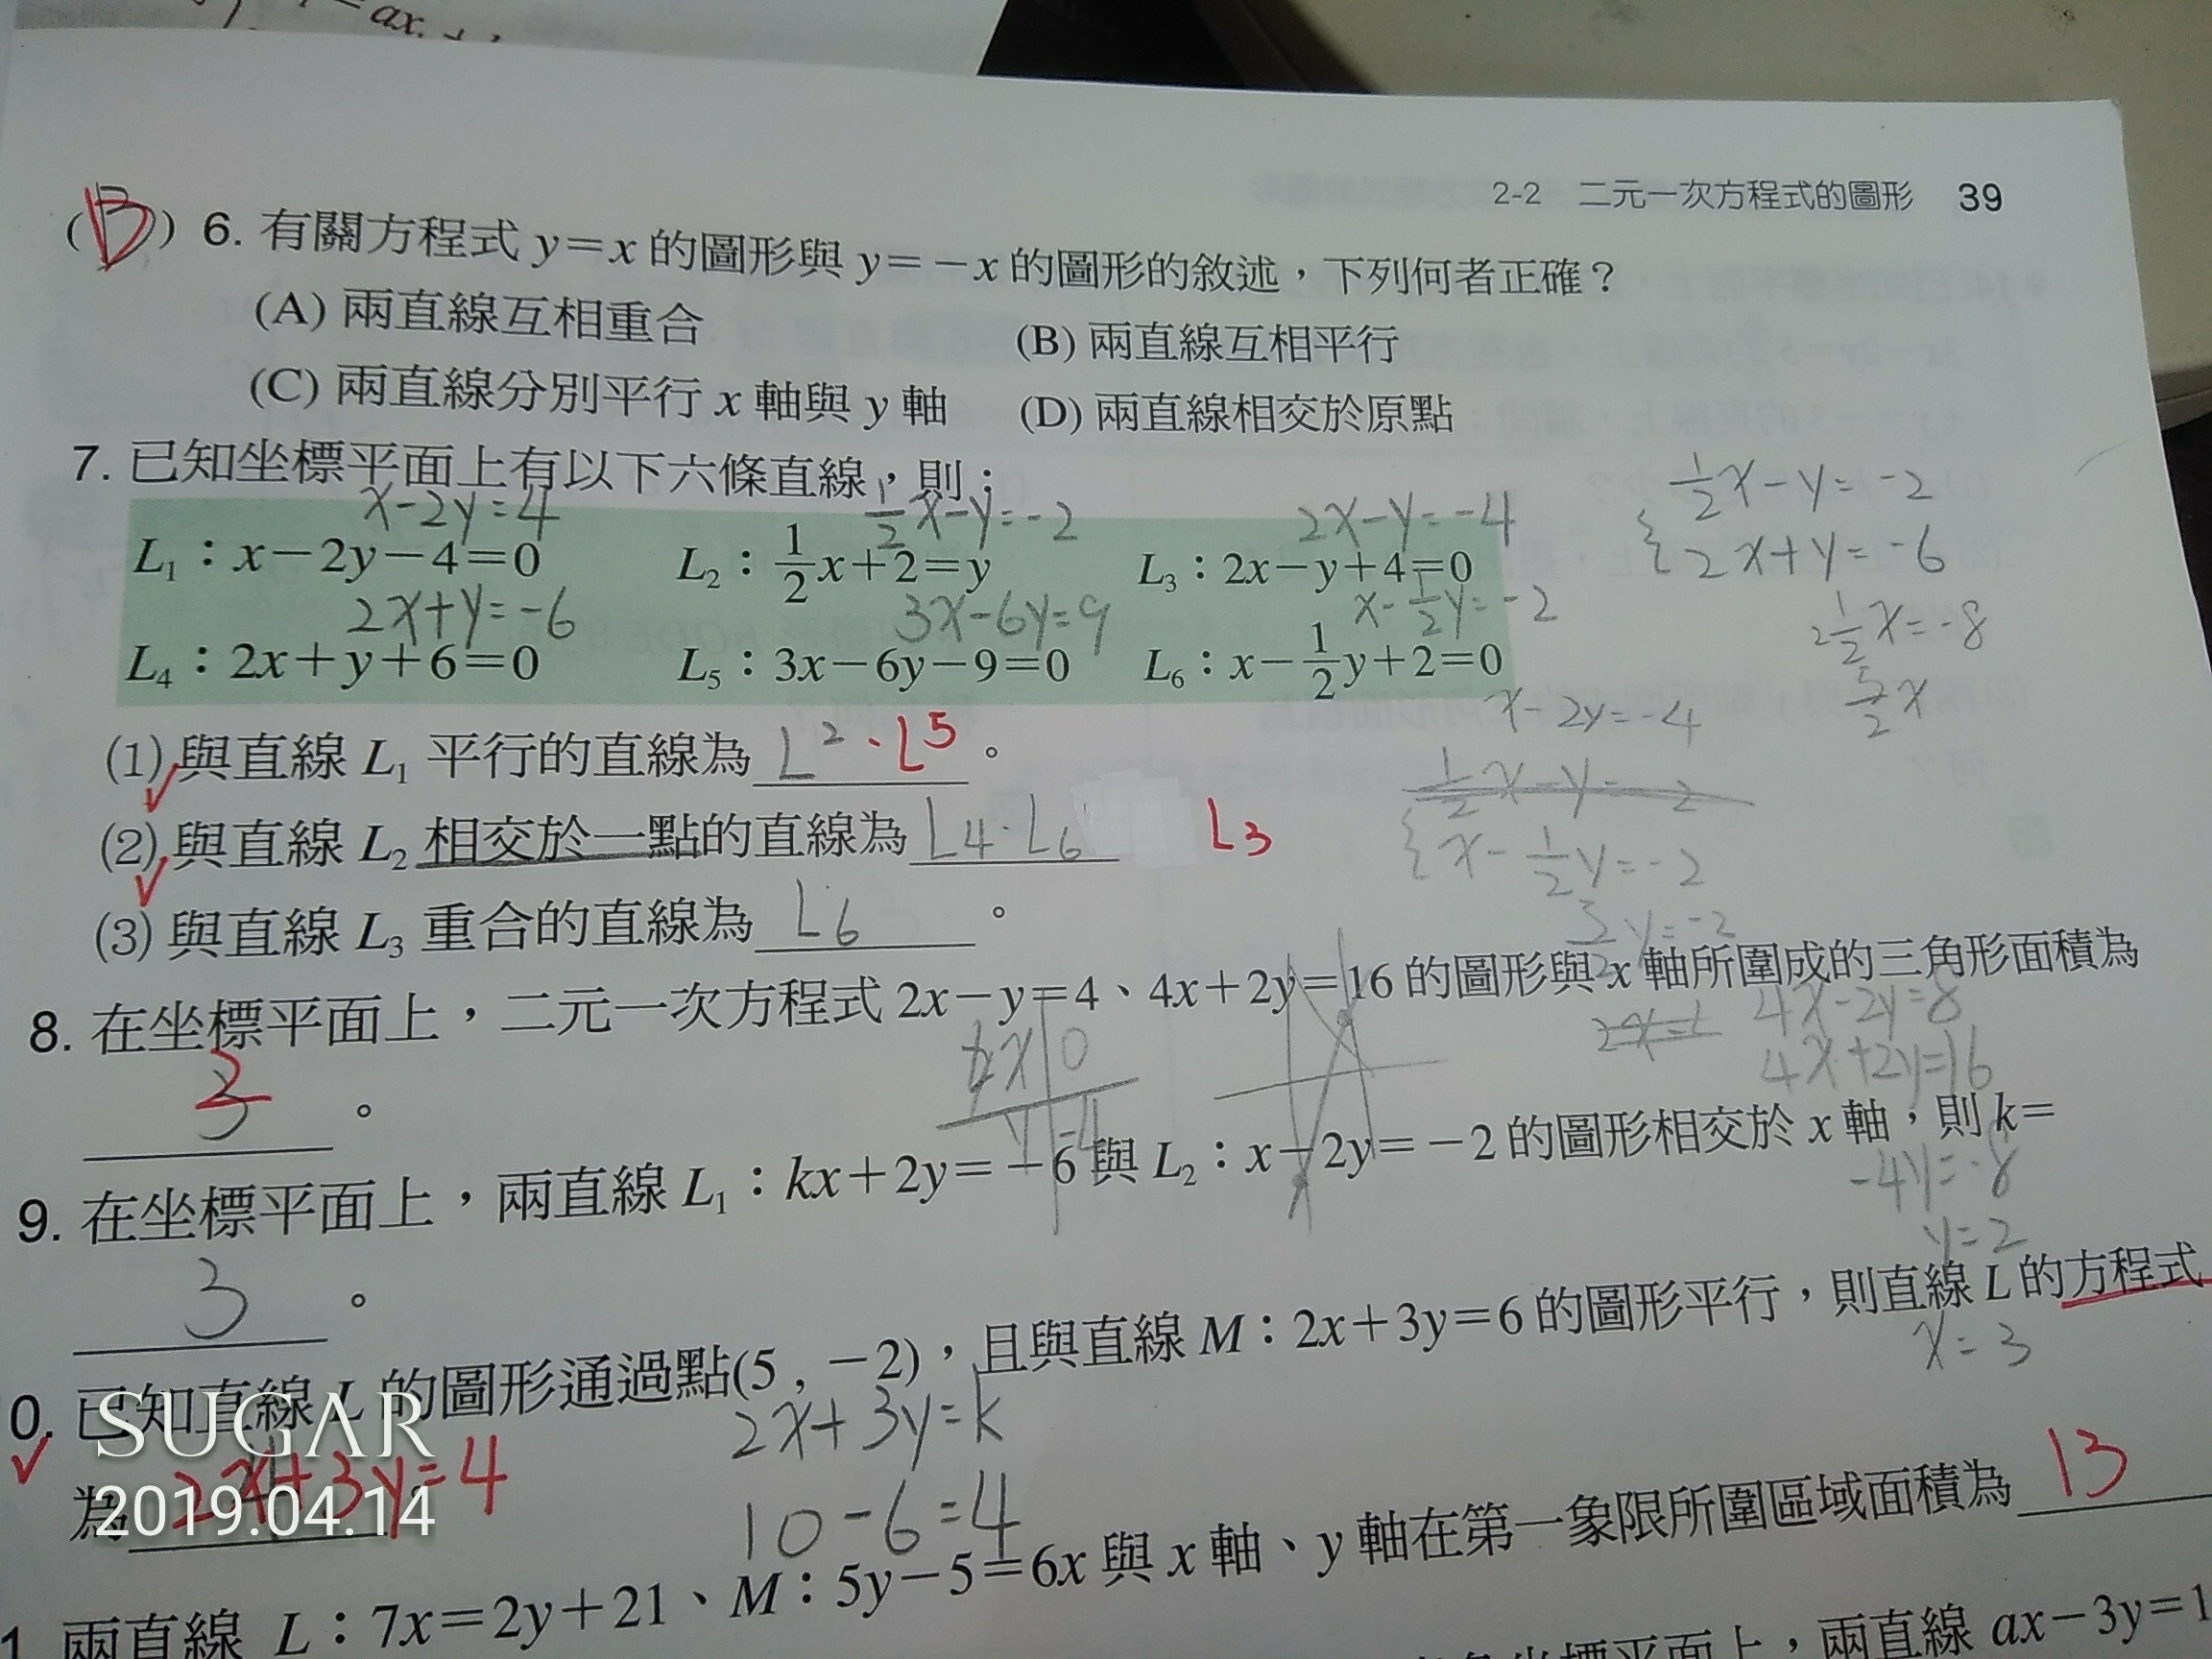 =ax.
2-2 二元一次方程式的圖形 39
(B) 6. 有關方程式 y=x 的圖形與 y=-x 的圖形的敘述，下列何者正確？
(A) 兩直線互相重合 (B) 兩直線互相平行
(C) 兩直線分別平行 x 軸與 y 軸 (D) 兩直線相交於原點
7. 已知坐標平面上有以下六條直線，則：
x-2y=4 1/2x-y=-2 2x-y=-4
L₁：x-2y-4=0 L₂：1/2x+2=y L₃：2x-y+4=0
2x+y=-6 3x-6y=9 x-1/2y=-2
L₄：2x+y+6=0 L₅：3x-6y-9=0 L₆：x-1/2y+2=0
1/2x-y=-2
2x+y=-6
2 1/2x=-8
5/2x
(1) 與直線 L₁ 平行的直線為 L2、L5。
(2) 與直線 L₂ 相交於一點的直線為 L4.L6 L3
(3) 與直線 L₃ 重合的直線為 L6。
x-2y=-4
1/2x-y=-2
x-1/2y=-2
3/2y=-2
8. 在坐標平面上，二元一次方程式 2x-y=4、4x+2y=16 的圖形與 x 軸所圍成的三角形面積為
2
3。
x 0
y -4
4x-2y=8
4x+2y=16
-4y=-8
y=2
x=3
9. 在坐標平面上，兩直線 L₁：kx+2y=-6 與 L₂：x-2y=-2 的圖形相交於 x 軸，則 k=
3。
0. 已知直線 L 的圖形通過點(5 , -2)，且與直線 M：2x+3y=6 的圖形平行，則直線 L 的方程式
2x+3y=k
為 2x+3y=4
10-6=4
SUGAR
2019.04.14
1. 兩直線 L：7x=2y+21、M：5y-5=6x 與 x 軸、y 軸在第一象限所圍區域面積為 13
坐標平面上，兩直線 ax-3y=1